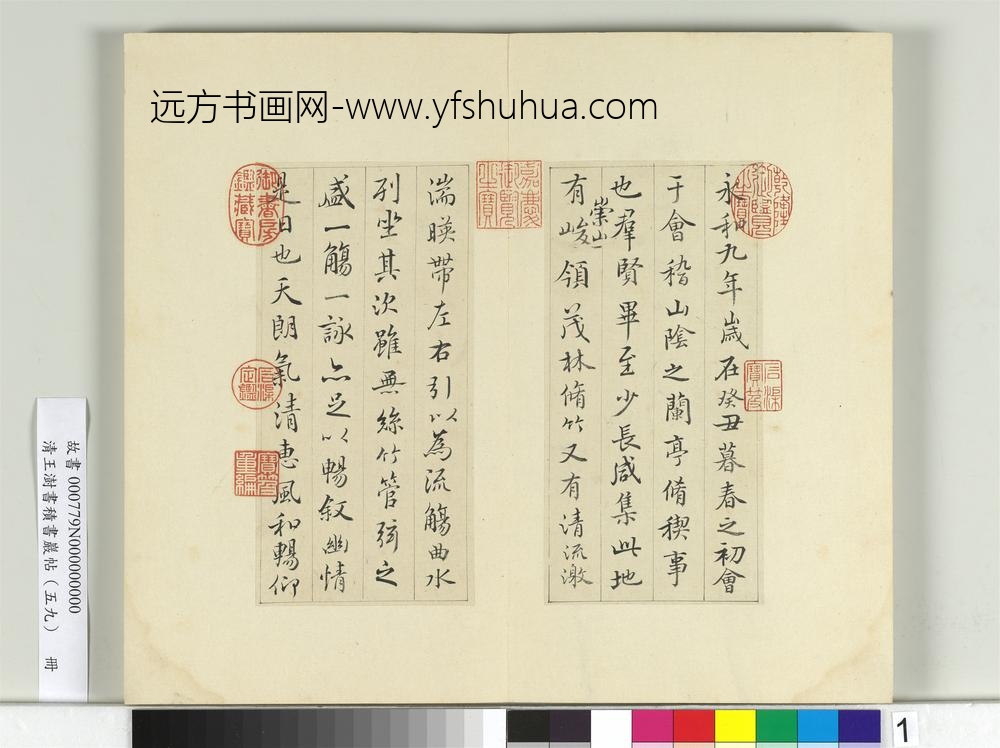 远方书画网-www.yfshuhua.com
永和九年歲在癸丑暮春之初會
于會稽山陰之蘭亭脩稧事
也羣賢畢至少長咸集此地
有崇山峻領茂林脩竹又有清流激
湍暎帶左右引以為流觴曲水
列坐其次雖無絲竹管弦之
盛一觴一詠亦足以暢叙幽情
是日也天朗氣清惠風和暢仰
乾隆御覽之寶
石渠寶笈
嘉慶御覽之寶
御書房鑑藏寶
石渠定鑑
寶笈重編
故書 000779N000000000
清王澍書積書巖帖(五九) 冊
1